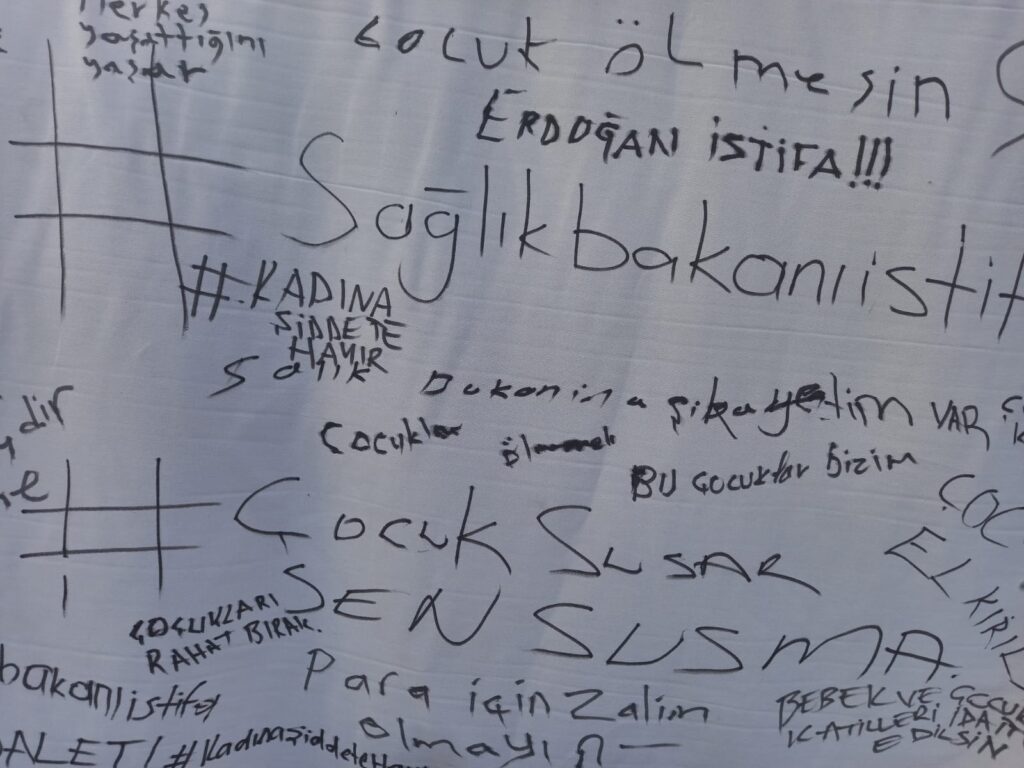 Herkes
yaşattığını
yaşar
Çocuk ölmesin
ERDOĞAN İSTİFA!!!
# Sağlıkbakanıistif
#KADINA
ŞİDDETE
HAYIR
artık
şikayetim VAR
Çocuklar ölmemeli
BU çocuklar bizim
# Çocuk SUSAR
SEN SUSMA.
ÇOC
EL
KIRIL
ÇOCUKLARI
RAHAT BIRAK.
bakanıistifa
Para için zalim
olmayın
BEBEK VE ÇOCUK
KATİLLERİ İDAM
EDİLSİN